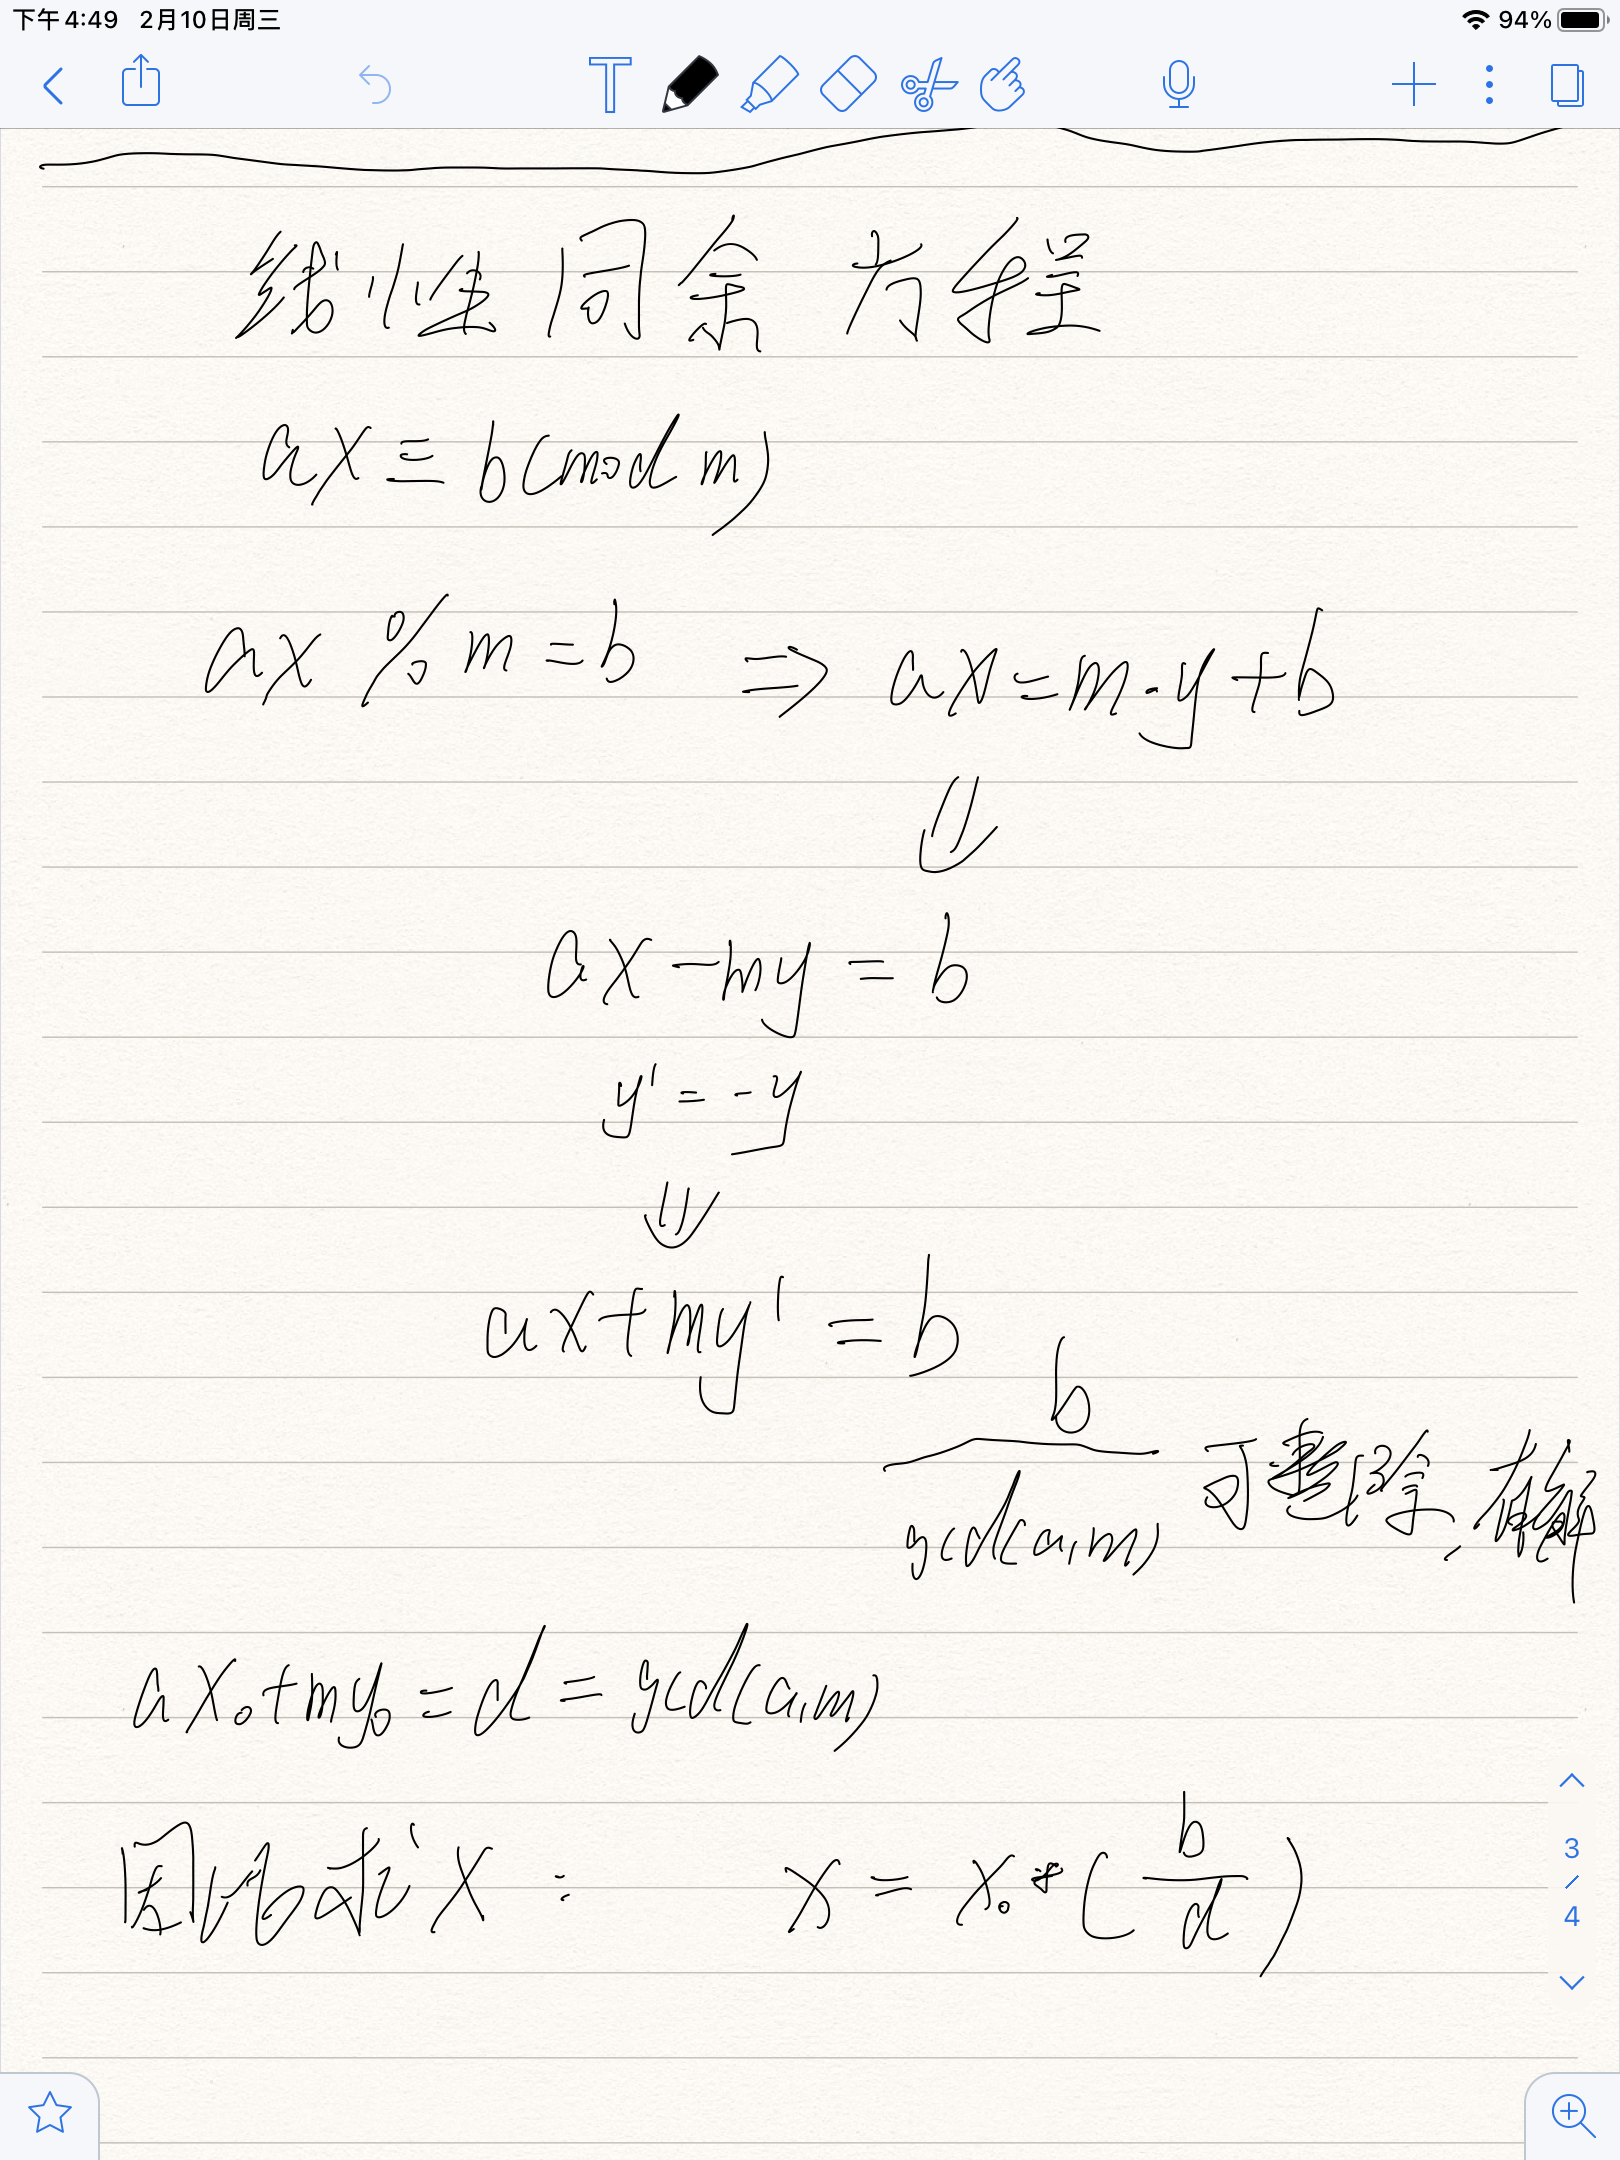 下午4:49 2月10日周三 94%
T
线性同余方程
ax ≡ b(mod m)
ax % m = b ⇒ ax = m·y + b
⇓
ax - my = b
y' = -y
⇓
ax + my' = b
b
gcd(a,m) 可整除,有解
ax₀ + my₀ = d = gcd(a,m)
因此求x: x = x₀*(b/d)
3
/
4